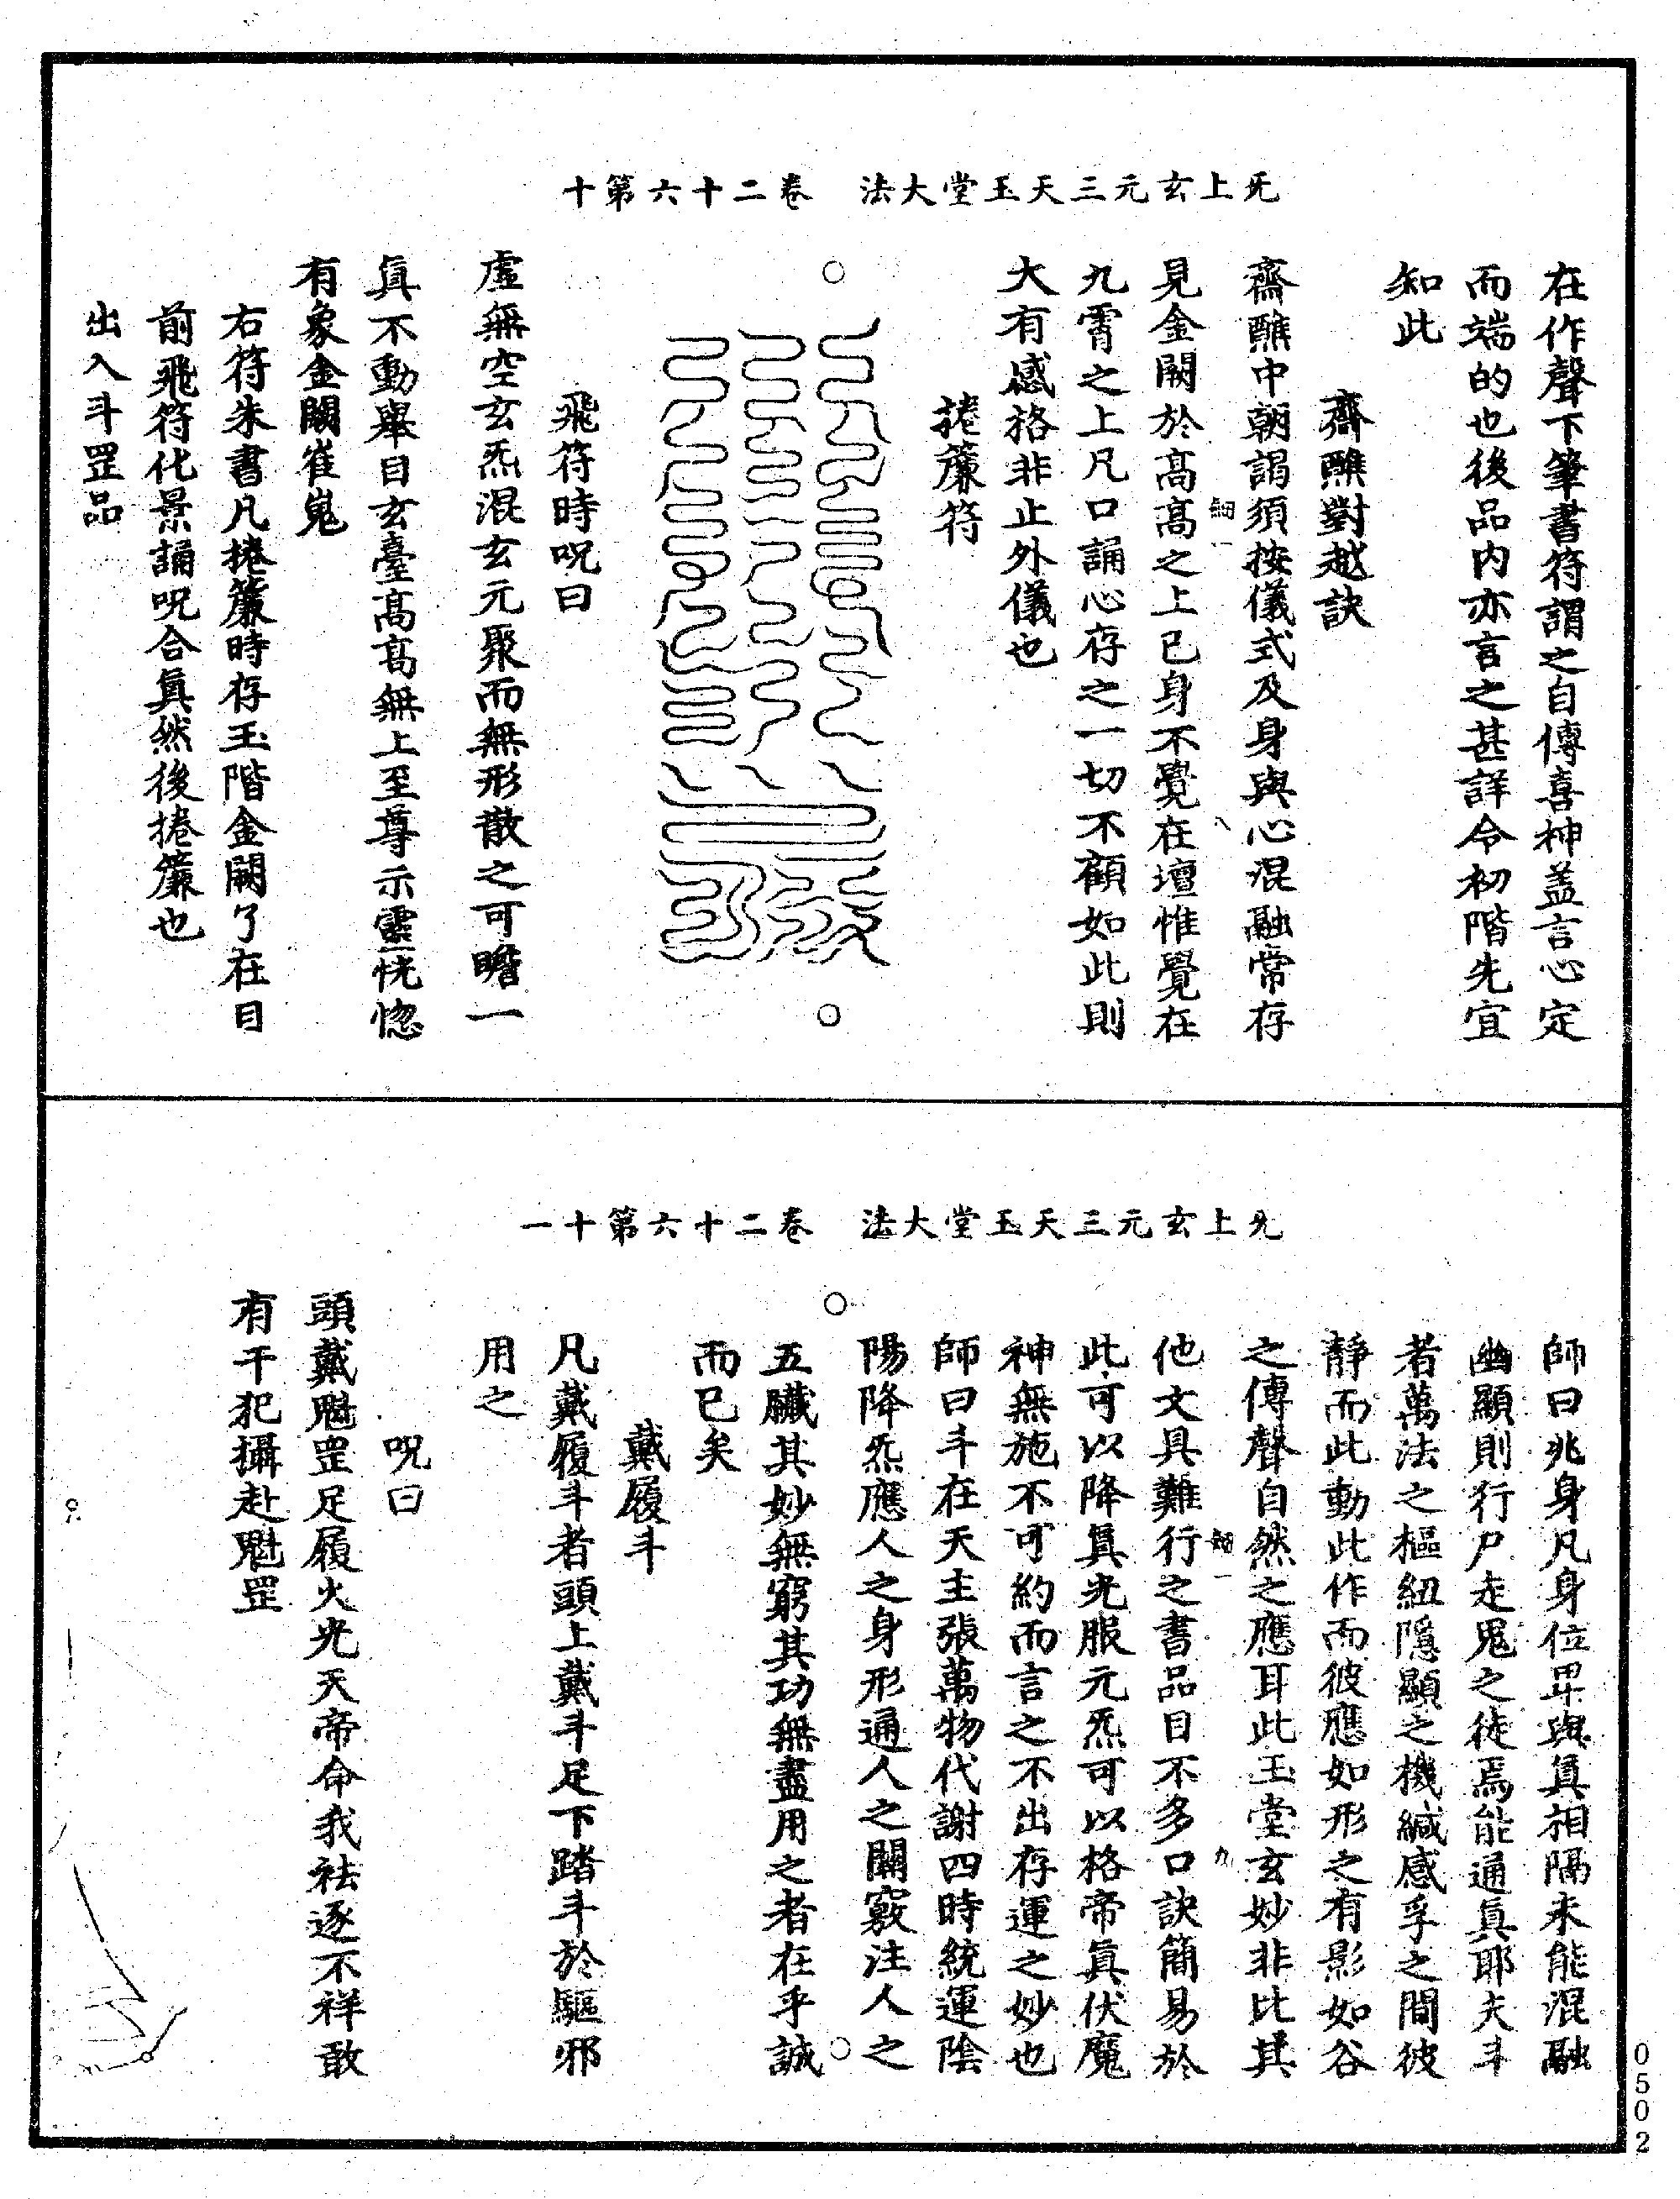 无上玄元三天玉堂大法 卷二十六第十
在作聲下筆書符謂之自傳喜神蓋言心定
而端的也後品內亦言之甚詳令初階先宜
知此
齋醮對越訣
齋醮中朝謁須按儀式及身與心混融常存
見金闕於高高之上已身不覺在壇惟覺在
九霄之上凡口誦心存之一切不顧如此則
大有感格非止外儀也
捲簾符
飛符時呪曰
虛無空玄炁混玄元聚而無形散之可瞻一
真不動舉目玄臺高高無上至尊示靈恍惚
有象金闕崔嵬
右符朱書凡捲簾時存玉階金闕了在目
前飛符化景誦呪合真然後捲簾也
出入斗罡品
无上玄元三天玉堂大法 卷二十六第十一
師曰兆身凡身位卑與真相隔未能混融
幽顯則行尸走鬼之徒焉能通真耶夫斗
者萬法之樞紐隱顯之機緘感孚之間彼
靜而此動此作而彼應如形之有影如谷
之傳聲自然之應耳此玉堂玄妙非比其
他文具難行之書品目不多口訣簡易於
此可以降真光服元炁可以格帝真伏魔
神無施不可約而言之不出存運之妙也
師曰斗在天主張萬物代謝四時統運陰
陽降炁應人之身形通人之關竅注人之
五臟其妙無窮其功無盡用之者在乎誠
而已矣
戴履斗
凡戴履斗者頭上戴斗足下踏斗於驅邪
用之
呪曰
頭戴魁罡足履火光天帝命我祛逐不祥敢
有干犯攝赴魁罡
0502